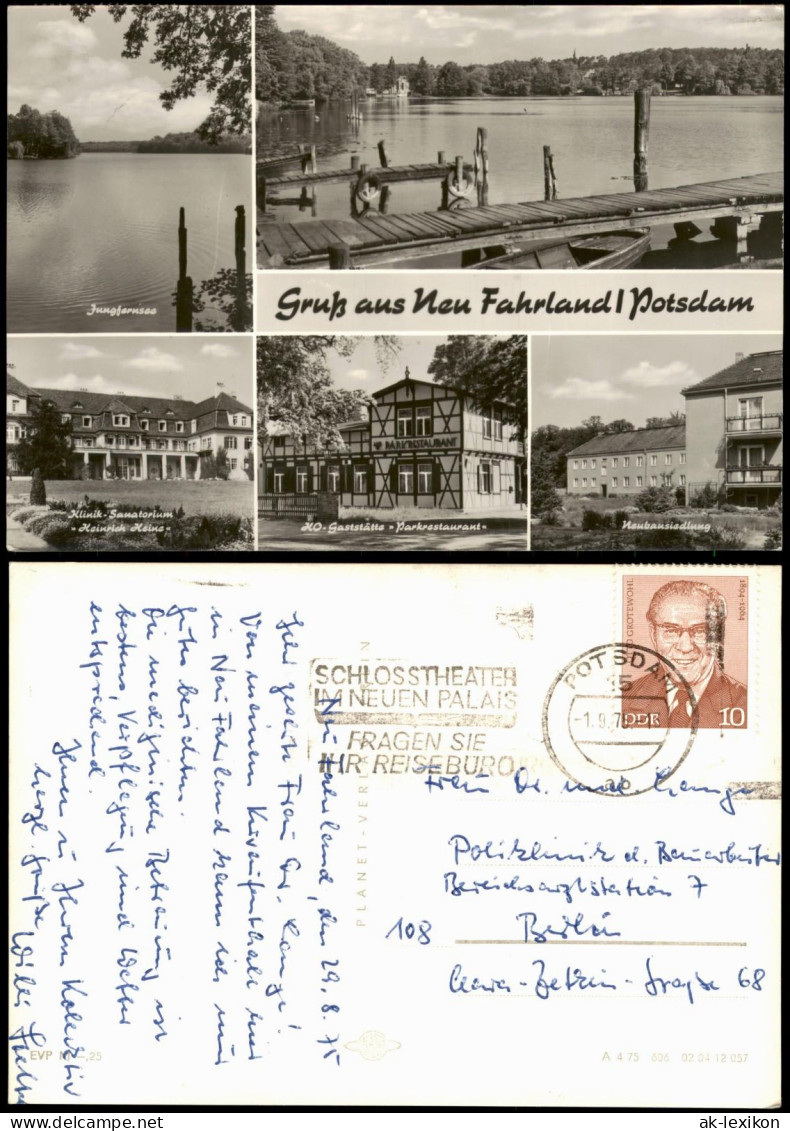 Jungfernsee
Gruß aus Neu Fahrland / Potsdam
Klinik-Sanatorium
»Heinrich Heine«
PARKRESTAURANT
HO-Gaststätte »Parkrestaurant«
Neubausiedlung
Neu Fahrland, den 29.8.75
Sehr geehrte Frau Dr. Lange!
Von meinem Kuraufenthalt hier
in Neu Fahrland kann ich nur
gutes berichten.
Die medizinische Betreuung ist
bestens, Verpflegung und Wetter
entsprechend.
Ihnen u. Ihrem Kollektiv
herzl. Grüße Willi
SCHLOSSTHEATER
IM NEUEN PALAIS
FRAGEN SIE
IHR REISEBÜRO
POTSDAM
15
-1.9.75
ab
GROTEWOHL
1894-1964
DDR
10
PLANET-VER
IN
Frau Dr. med. Lange
Poliklinik d. Bauarbeiter
Bereichsarztstation 7
108 Berlin
Clara-Zetkin-Straße 68
EVP M -,25
A 4 75 606 02 04 12 057
ak-lexikon